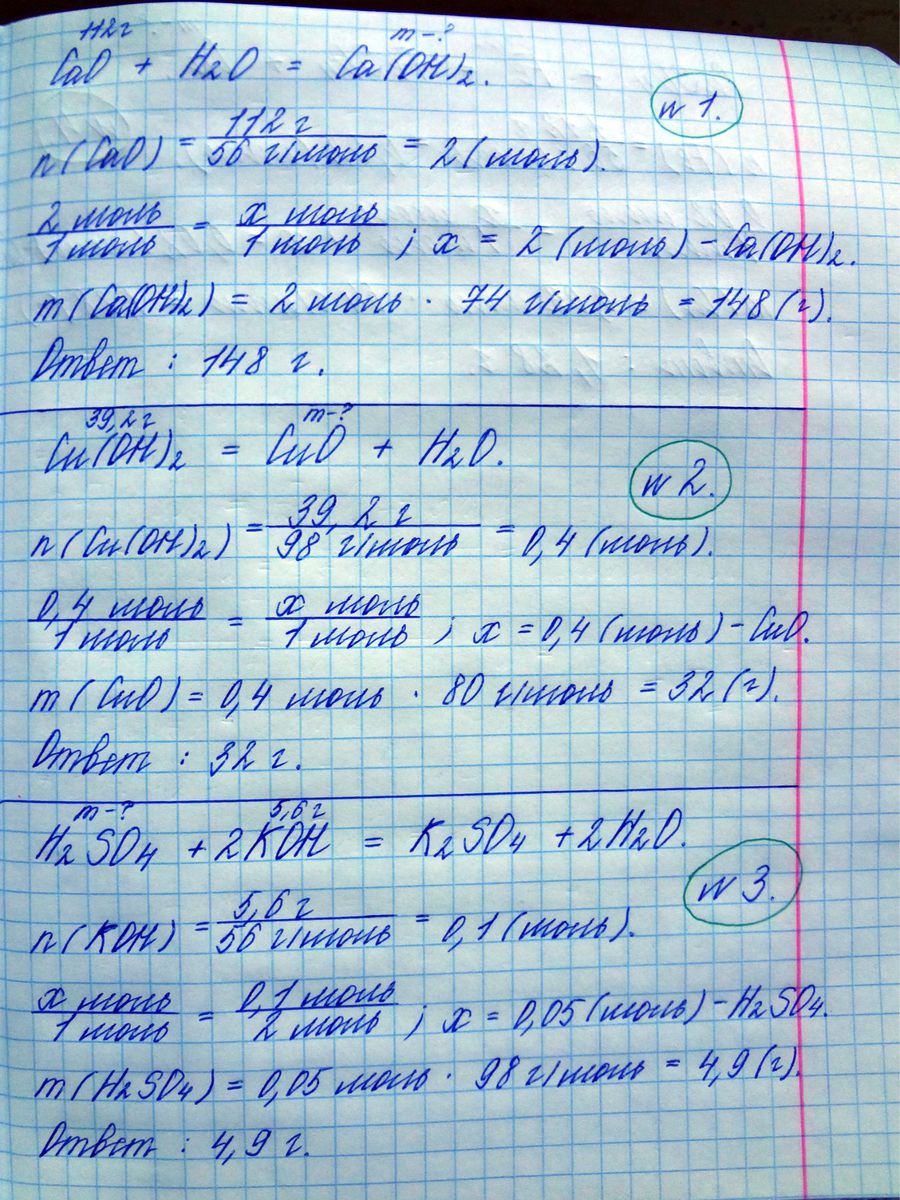 112г m-?
CaO + H2O = Ca(OH)2.
N1.
n(CaO) = 112 г / 56 г/моль = 2 (моль).
2 моль / 1 моль = x моль / 1 моль ; x = 2 (моль) - Ca(OH)2.
m(Ca(OH)2) = 2 моль · 74 г/моль = 148 (г).
Ответ : 148 г.
39,2г m-?
Cu(OH)2 = CuO + H2O.
N2.
n(Cu(OH)2) = 39,2 г / 98 г/моль = 0,4 (моль).
0,4 моль / 1 моль = x моль / 1 моль ; x = 0,4 (моль) - CuO.
m(CuO) = 0,4 моль · 80 г/моль = 32 (г).
Ответ : 32 г.
m-? 5,6 г
H2SO4 + 2KOH = K2SO4 + 2H2O.
N3.
n(KOH) = 5,6 г / 56 г/моль = 0,1 (моль).
x моль / 1 моль = 0,1 моль / 2 моль ; x = 0,05 (моль) - H2SO4.
m(H2SO4) = 0,05 моль · 98 г/моль = 4,9 (г).
Ответ : 4,9 г.